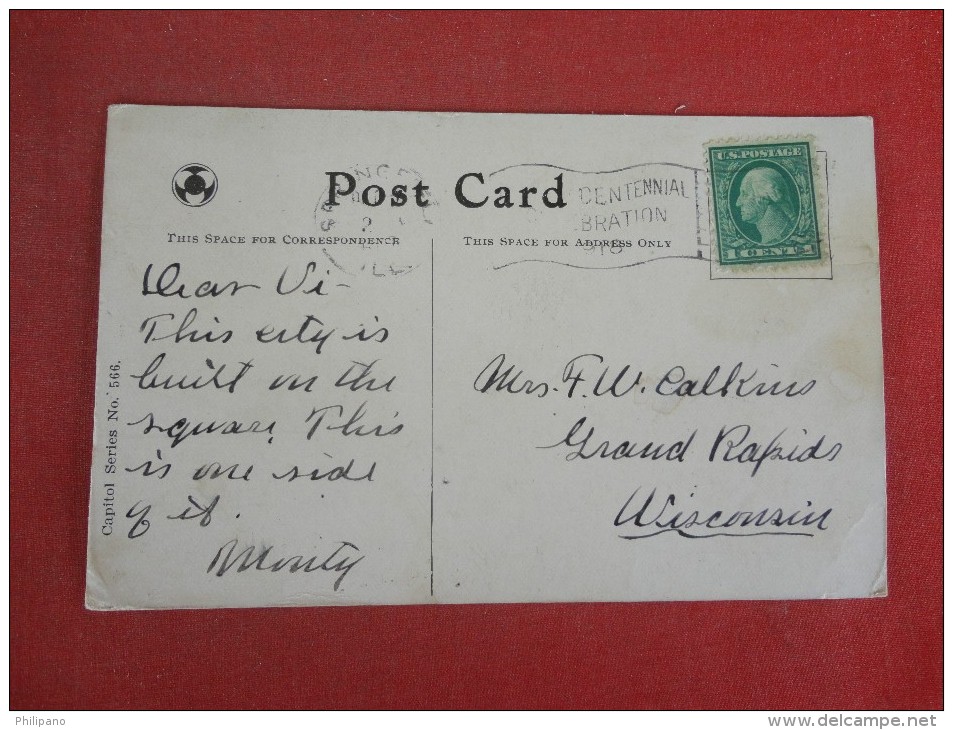 Post Card
THIS SPACE FOR CORRESPONDENCE
THIS SPACE FOR ADDRESS ONLY
CENTENNIAL
BRATION
U.S. POSTAGE
1 CENT 1
ILL
Dear Vi-
This city is
built on the
square. This
is one side
of it.
Monty
Mrs. F. W. Calkins
Grand Rapids
Wisconsin
Capitol Series No. 566.
Philipano
www.delcampe.net